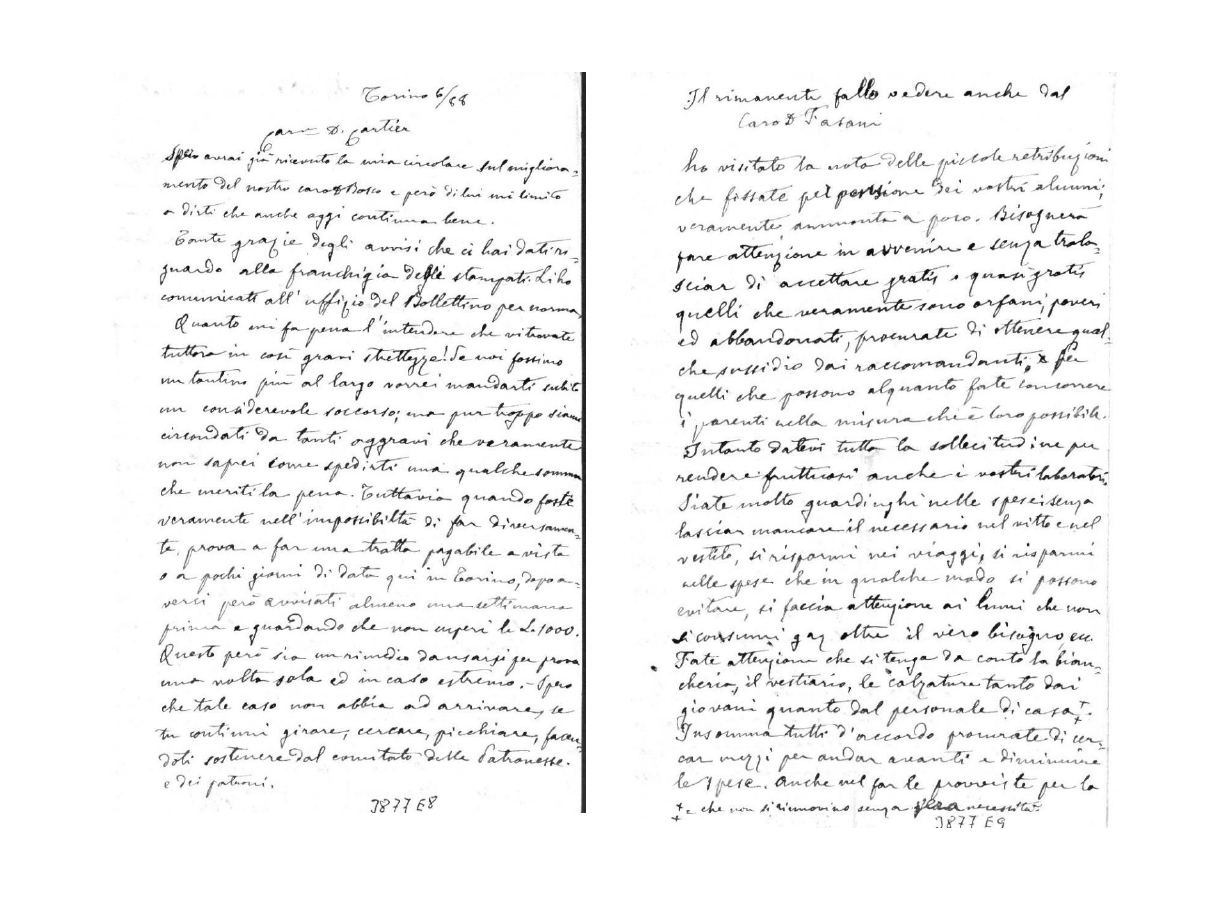 Torino 6/88
Caro D. Cartier
Spero avrai già ricevuto la mia circolare sul migliora-
mento del nostro caro D Bosco e però di lui mi limito
a dirti che anche oggi continua bene.
Tante grazie degli avvisi che ci hai dati ri-
guardo alla franchigia degli stampati. Li ho
comunicati all'uffizio del Bollettino per norma.
Quanto mi fa pena l'intendere che vi trovate
tuttora in così gravi strettezze! Se noi fossimo
un tantino più al largo vorrei mandarti subito
un considerevole soccorso; ma pur troppo siamo
circondati da tanti aggravi che veramente
non saprei come spedirti una qualche somma
che meriti la pena. Tuttavia quando foste
veramente nell'impossibiltà di far diversamen-
te, prova a far una tratta pagabile a vista
o a pochi giorni di data qui in Torino, dopo a-
verci però avvisati almeno una settimana
prima e guardando che non superi le L. 1000.
Questo però sia un rimedio da usarsi per prova
una volta sola ed in caso estremo. - Spero
che tale caso non abbia ad arrivare, se
tu continui girare, cercare, picchiare, facen-
doti sostenere dal comitato delle Patronesse.
e dei patroni.
J877 E8
Il rimanente fallo vedere anche dal
Caro D Fasani
ho visitato la nota delle piccole retribuzioni
che fissate pel pensione dei vostri alunni;
veramente, ammonta a poco. Bisognerà
fare attenzione in avvenire e senza trala-
sciar di accettare gratis o quasi gratis
quelli che veramente sono orfani, poveri
ed abbandonati, procurate di ottenere qual-
che sussidio dai raccomandanti, e per
quelli che possono alquanto fate concorrere
i parenti nella misura che è loro possibile.
Intanto datevi tutta la sollecitudine per
rendere fruttuosi anche i vostri laboratori.
Siate molto guardinghi nelle spese; senza
lasciar mancare il necessario nel vitto e nel
vestito, si risparmi nei viaggi, si risparmi
nelle spese che in qualche modo si possono
evitare, si faccia attenzione ai lumi che non
si consumi gaz oltre il vero bisogno ecc.
Fate attenzione che si tenga da conto la bian-
cheria, il vestiario, le calzature tanto dai
giovani quanto dal personale di casa +.
Insomma tutti d'accordo procurate di cer-
car mezzi per andar avanti e diminuire
le spese. Anche nel far le provviste per la
+ e che non si rinnovino senza vera necessità.
J877 E9